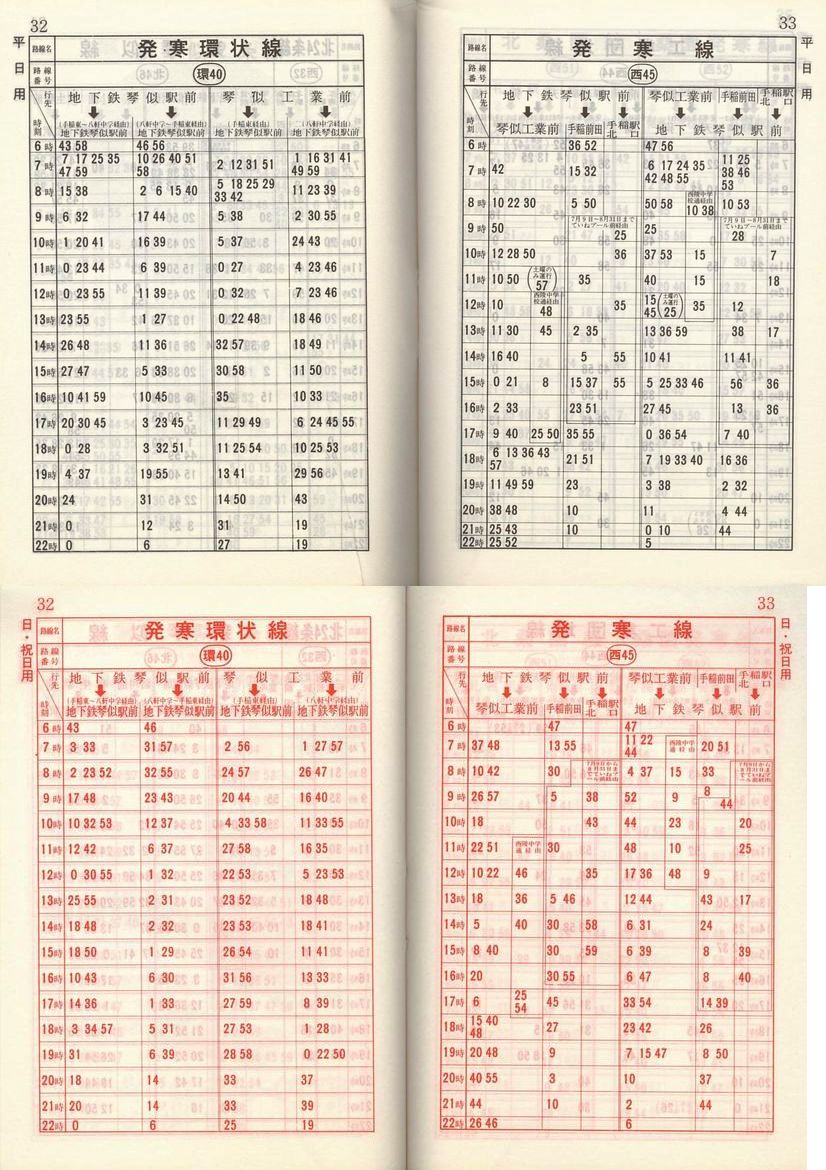 32
平日用
路線名 発寒環状線
路線番号 環40
行先 地下鉄琴似駅前 琴似工業前
時刻 (手稲東～八軒中学経由) 地下鉄琴似駅前 (八軒中学～手稲東経由) 地下鉄琴似駅前 (手稲東経由) 地下鉄琴似駅前 (八軒中学経由) 地下鉄琴似駅前
6時 43 58 46 56
7時 7 17 25 35 10 26 40 51 2 12 31 51 1 16 31 41
47 59 58 49 59
8時 15 38 2 6 15 40 5 18 25 29 11 23 39
33 42
9時 6 32 17 44 5 38 2 30 55
10時 1 20 41 16 39 5 37 24 43
11時 0 23 44 6 39 0 27 4 23 46
12時 0 23 55 11 39 0 32 7 23 46
13時 23 55 1 27 0 22 48 18 46
14時 26 48 11 36 32 57 18 49
15時 27 47 5 33 30 58 11 50
16時 10 41 59 10 45 35 10 33
17時 20 30 45 3 23 45 11 29 49 6 24 45 55
18時 0 28 3 32 51 11 25 54 10 25 53
19時 4 37 19 55 13 41 29 56
20時 24 31 14 50 43
21時 0 12 31 19
22時 0 6 27 19
33
平日用
路線名 発寒工団線
路線番号 西45
行先 地下鉄琴似駅前 琴似工業前 手稲前田 手稲駅北口
時刻 琴似工業前 手稲前田 手稲駅北口 地下鉄琴似駅前
6時 36 52 47 56
7時 42 15 32 6 17 24 35 11 25
42 48 55 38 46
53
8時 10 22 30 5 50 50 58 西陵中学校通経由 10 38 10 53
9時 50 7月9日～8月31日までていねプール前経由 25 25 7月9日～8月31日までていねプール前経由 28
10時 12 28 50 36 37 53 15 7
11時 10 50 土曜のみ運行 57 35 40 15 18
12時 10 西陵中学校通経由 48 35 15 土曜のみ運行 25 35 12
45
13時 11 30 45 2 35 13 36 59 38 17
14時 16 40 5 55 10 41 11 41
15時 0 21 8 15 37 55 5 25 33 46 56 36
16時 2 33 23 51 27 45 13 36
17時 9 40 25 50 35 55 0 36 54 7 40
18時 6 13 36 43 21 51 7 19 33 40 16 36
57
19時 11 49 59 23 3 38 2 32
20時 38 48 10 11 4 44
21時 25 43 10 0 10 44
22時 25 52 5
32
日・祝日用
路線名 発寒環状線
路線番号 環40
行先 地下鉄琴似駅前 琴似工業前
時刻 (手稲東～八軒中学経由) 地下鉄琴似駅前 (八軒中学～手稲東経由) 地下鉄琴似駅前 (手稲東経由) 地下鉄琴似駅前 (八軒中学経由) 地下鉄琴似駅前
6時 43 46
7時 3 33 31 57 2 56 1 27 57
8時 2 23 52 32 55 24 57 26 47
9時 17 48 23 43 20 44 16 40
10時 10 32 53 12 37 4 33 58 11 33 55
11時 12 42 6 37 27 58 16 35
12時 0 30 55 1 32 22 53 5 23 53
13時 25 55 2 31 23 52 18 48
14時 18 48 2 32 23 53 18 41
15時 18 50 1 29 26 54 11 41
16時 10 43 6 30 31 56 13 33
17時 14 36 1 33 27 59 8 39
18時 3 34 57 5 31 27 53 1 28
19時 31 6 39 28 58 0 22 50
20時 18 14 33 37
21時 20 14 33 39
22時 0 6 25 19
33
日・祝日用
路線名 発寒団線
路線番号 西45
行先 地下鉄琴似駅前 琴似工業前 手稲前田 手稲駅北口
時刻 琴似工業前 手稲前田 手稲駅北口 地下鉄琴似駅前
6時 47 47
7時 37 48 13 55 11 22 西陵中学通経由 20 51
44
8時 10 42 30 4 37 15 33
9時 26 57 5 38 52 9 8
44
10時 18 43 44 23 20
11時 22 51 西陵中学通経由 30 48 10 25
12時 10 22 46 35 17 36 48 9
13時 18 36 5 46 12 44 43 17
14時 5 40 30 58 6 31 24
15時 8 40 30 59 6 39 8 39
16時 20 30 55 6 47 8 40
17時 6 25 45 33 54 14 39
54
18時 15 40 27 23 42 26
48
19時 20 48 9 7 15 47 8 50
20時 40 55 3 10 37
21時 44 10 2 44
22時 26 46 6